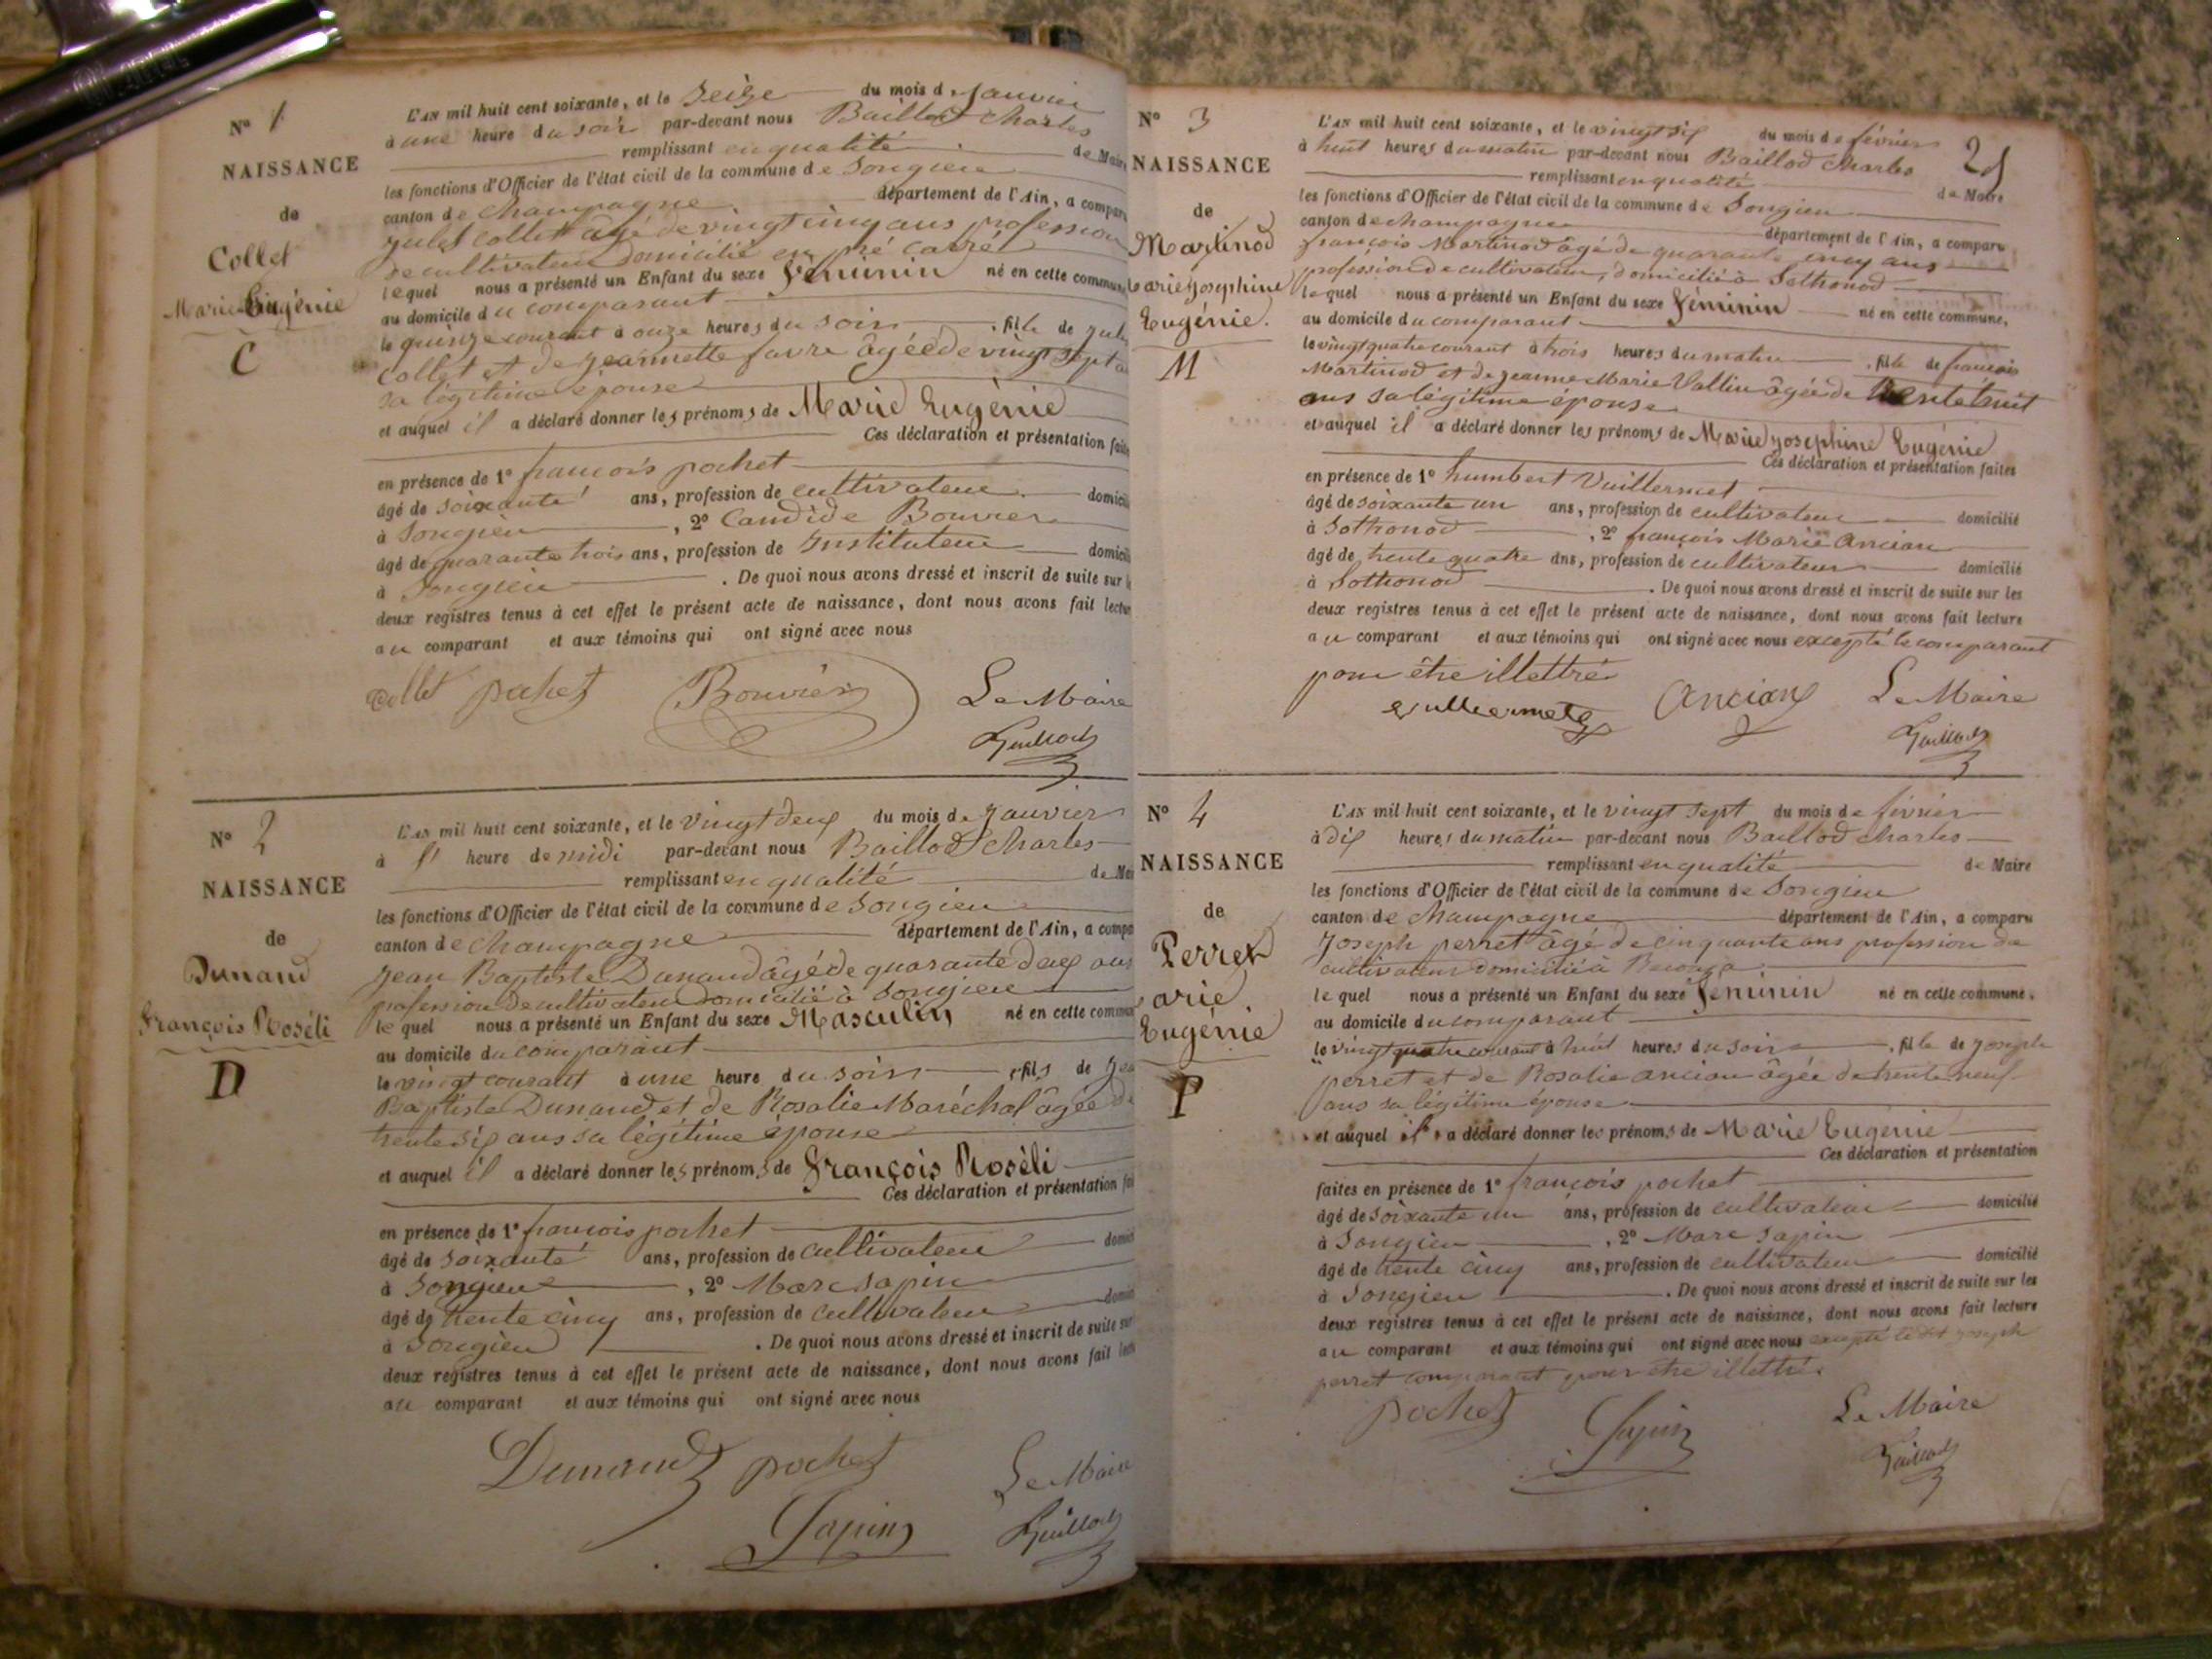 N° 1
NAISSANCE
de
Collet
Marie Eugénie
C
L'AN mil huit cent soixante, et le seize du mois de janvier
à une heure du soir par-devant nous Baillod Charles
remplissant en qualité de Maire
les fonctions d'Officier de l'état civil de la commune de Songieu
canton de Champagne département de l'Ain, a compar
jules collet âgé de vingt cinq ans profession
de cultivateur domicilié en pré carré
lequel nous a présenté un Enfant du sexe féminin né en cette commune
au domicile du comparant
le quinze courant à onze heures du soir, fille de jules
collet et de jeannette favre âgée de vingt sept a
sa légitime épouse
et auquel il a déclaré donner les prénoms de Marie Eugénie
Ces déclaration et présentation faites
en présence de 1° francois pochet
âgé de soixante ans, profession de cultivateur domicilié
à Songieu, 2° Candide Bouvier
âgé de quarante trois ans, profession de Instituteur domicilié
à Songieu. De quoi nous avons dressé et inscrit de suite sur l
deux registres tenus à cet effet le présent acte de naissance, dont nous avons fait lectur
au comparant et aux témoins qui ont signé avec nous
Collet pochet Bouvier Le Maire
Baillod
N° 2
NAISSANCE
de
Dunand
François Roséli
D
L'AN mil huit cent soixante, et le vingt deux du mois de janvier
à 1 heure de midi par-devant nous Baillod Charles
remplissant en qualité de Mai
les fonctions d'Officier de l'état civil de la commune de Songieu
canton de Champagne département de l'Ain, a compa
jean Baptiste Dunand âgé de quarante deux ans
profession de cultivateur domicilié à Songieu
lequel nous a présenté un Enfant du sexe Masculin né en cette commun
au domicile du comparant
le vingt courant à une heure du soir, fils de jea
Baptiste Dunand et de Rosalie Maréchal âgée de
trente six ans sa légitime épouse
et auquel il a déclaré donner les prénoms de François Roséli
Ces déclaration et présentation fai
en présence de 1° francois pochet
âgé de soixante ans, profession de cultivateur domici
à Songieu, 2° Marc sapin
âgé de trente cinq ans, profession de cultivateur domici
à Songieu. De quoi nous avons dressé et inscrit de suite sur
deux registres tenus à cet effet le présent acte de naissance, dont nous avons fait lectu
au comparant et aux témoins qui ont signé avec nous
Dunand pochet Le Maire
Sapin Baillod
N° 3
NAISSANCE
de
Martinod
Marie Josephine
Eugénie.
M
21
L'AN mil huit cent soixante, et le vingt six du mois de février
à huit heures du matin par-devant nous Baillod Charles
remplissant en qualité de Maire
les fonctions d'Officier de l'état civil de la commune de Songieu
canton de Champagne département de l'Ain, a comparu
françois Martinod âgé de quarante cinq ans
profession de cultivateur, domicilié à Sothonod
lequel nous a présenté un Enfant du sexe féminin né en cette commune,
au domicile du comparant
le vingt quatre courant à trois heures du matin, fille de francois
Martinod et de jeanne Marie Vallin âgée de trente huit
ans sa légitime épouse
et auquel il a déclaré donner les prénoms de Marie josephine Eugénie
Ces déclaration et présentation faites
en présence de 1° humbert Vuillermet
âgé de soixante un ans, profession de cultivateur domicilié
à Sothonod, 2° françois Marie Ancian
âgé de trente quatre ans, profession de cultivateur domicilié
à Sothonod. De quoi nous avons dressé et inscrit de suite sur les
deux registres tenus à cet effet le présent acte de naissance, dont nous avons fait lecture
au comparant et aux témoins qui ont signé avec nous excepté le comparant
pour être illettré
vuillermet Ancian Le Maire
Baillod
N° 4
NAISSANCE
de
Perret
arie
Eugénie
P
L'AN mil huit cent soixante, et le vingt sept du mois de février
à dix heures du matin par-devant nous Baillod Charles
remplissant en qualité de Maire
les fonctions d'Officier de l'état civil de la commune de Songieu
canton de Champagne département de l'Ain, a comparu
Joseph perret âgé de cinquante ans profession de
cultivateur domicilié à
lequel nous a présenté un Enfant du sexe féminin né en cette commune,
au domicile du comparant
le vingt quatre courant à huit heures du soir, fille de joseph
perret et de Rosalie ancian âgée de trente neuf
ans sa légitime épouse
et auquel il a déclaré donner les prénoms de Marie Eugénie
Ces déclaration et présentation
faites en présence de 1° francois pochet
âgé de soixante un ans, profession de cultivateur domicilié
à Songieu, 2° Marc sapin
âgé de trente cinq ans, profession de cultivateur domicilié
à Songieu. De quoi nous avons dressé et inscrit de suite sur les
deux registres tenus à cet effet le présent acte de naissance, dont nous avons fait lecture
au comparant et aux témoins qui ont signé avec nous excepté ledit joseph
perret comparant pour être illettré.
pochet Sapin Le Maire
Baillod